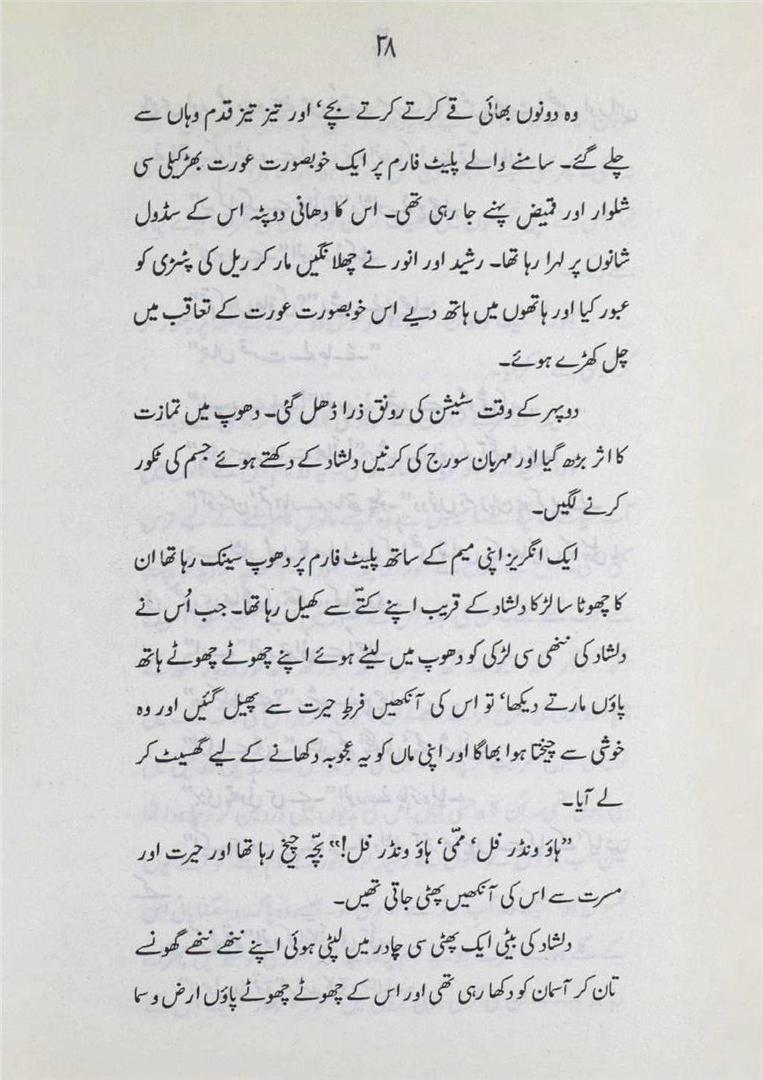 ۳۸
وہ دونوں بھائی قے کرتے کرتے بچے، اور تیز تیز قدم وہاں سے
چلے گئے۔ سامنے والے پلیٹ فارم پر ایک خوبصورت عورت بھڑکیلی سی
شلوار اور قمیض پہنے جا رہی تھی۔ اس کا دھانی دوپٹہ اس کے سڈول
شانوں پر لہرا رہا تھا۔ رشید اور انور نے چھلانگیں مار کر ریل کی پٹڑی کو
عبور کیا اور ہاتھوں میں ہاتھ دیے اس خوبصورت عورت کے تعاقب میں
چل کھڑے ہوئے۔
دوپہر کے وقت سٹیشن کی رونق ذرا ڈھل گئی۔ دھوپ میں تمازت
کا اثر بڑھ گیا اور مہربان سورج کی کرنیں دلشاد کے دکھتے ہوئے جسم کی ٹکور
کرنے لگیں۔
ایک انگریز اپنی میم کے ساتھ پلیٹ فارم پر دھوپ سینک رہا تھا ان
کا چھوٹا سا لڑکا دلشاد کے قریب اپنے کتّے سے کھیل رہا تھا۔ جب اُس نے
دلشاد کی ننھی سی لڑکی کو دھوپ میں لیٹے ہوئے اپنے چھوٹے چھوٹے ہاتھ
پاؤں مارتے دیکھا، تو اس کی آنکھیں فرطِ حیرت سے پھیل گئیں اور وہ
خوشی سے چیختا ہوا بھاگا اور اپنی ماں کو یہ عجوبہ دکھانے کے لیے گھسیٹ کر
لے آیا۔
”ہاؤ ونڈر فل، ممّی، ہاؤ ونڈر فل!“ بچّہ چیخ رہا تھا اور حیرت اور
مسرت سے اس کی آنکھیں پھٹی جاتی تھیں۔
دلشاد کی بیٹی ایک پھٹی سی چادر میں لپٹی ہوئی اپنے ننھے ننھے گھونسے
تان کر آسمان کو دکھا رہی تھی اور اس کے چھوٹے چھوٹے پاؤں ارض و سما